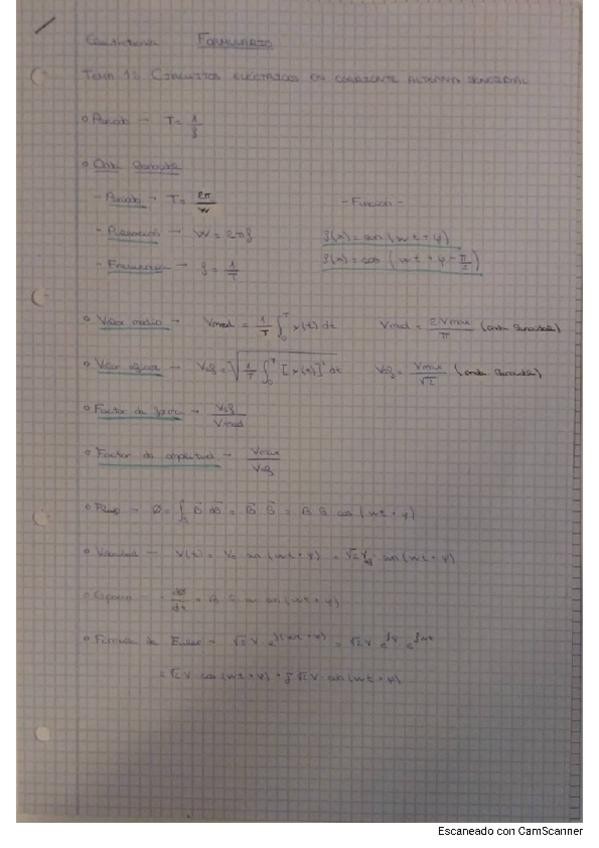 FORMULARIO
TEMA 1: CIRCUITOS ELÉCTRICOS EN CORRIENTE ALTERNA SENOIDAL
Periodo → T = 1/f
Onda Senoidal
- Periodo → T = 2π/W
- Función -
- Pulsación → W = 2πf
f(x) = sen (wt + φ)
- Frecuencia → f = 1/T
f(x) = cos (wt + φ - π/2)
Valor medio → Vmed = 1/T ∫₀ᵀ x(t) dt
Vmed = 2Vmax/π (onda senoidal)
Valor eficaz → Vef = √(1/T ∫₀ᵀ [x(t)]² dt)
Vef = Vmax/√2 (onda senoidal)
Factor de forma → Vef/Vmed
Factor de amplitud → Vmax/Vef
Flujo → Ø = ∫ B dS = B S = B S cos (wt + φ)
V(t) = V₀ sen (wt + φ) = √2 Vef sen (wt + φ)
dØ/dt = B S w sen (wt + φ)
Fórmula de Euler → √2 V e^j(wt + φ) = √2 V e^jφ e^jwt
= √2 V cos (wt + φ) + j √2 V sen (wt + φ)
Escaneado con CamScanner